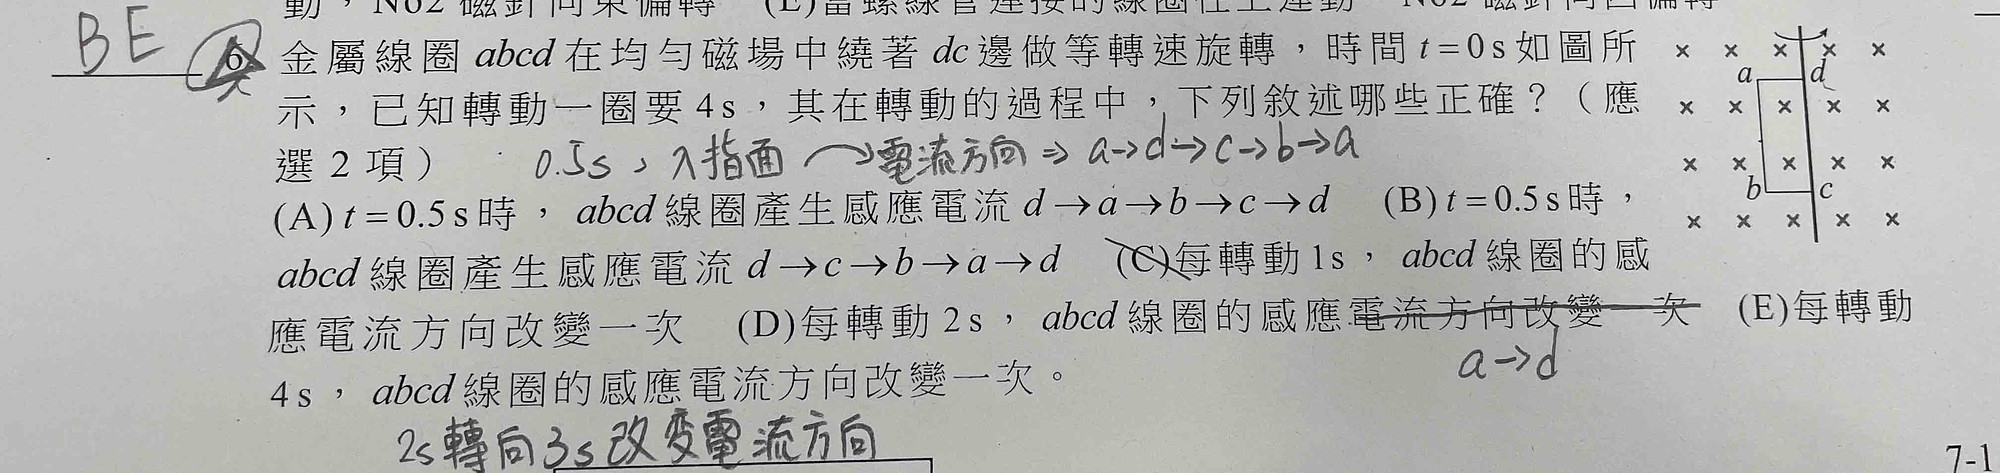 動，No2 磁針向東偏轉　(E)當螺線管連接的線圈往上運動　No2 磁針向西偏轉
BE
6. 金屬線圈 abcd 在均勻磁場中繞著 dc 邊做等轉速旋轉，時間 t=0s 如圖所
示，已知轉動一圈要 4s，其在轉動的過程中，下列敘述哪些正確？（應
選 2 項）
0.5s，入指面 ⤵ 電流方向 ⇒ a→d→c→b→a
(A) t=0.5s時，abcd 線圈產生感應電流 d→a→b→c→d　(B) t=0.5s時，
abcd 線圈產生感應電流 d→c→b→a→d　(C)每轉動 1s，abcd 線圈的感
應電流方向改變一次　(D)每轉動 2s，abcd 線圈的感應電流方向改變一次　(E)每轉動
a→d
4s，abcd 線圈的感應電流方向改變一次。
2s轉向3s改变電流方向
× × × × ×
a d
× × × × ×
× × × × ×
b c
× × × × ×
7-1